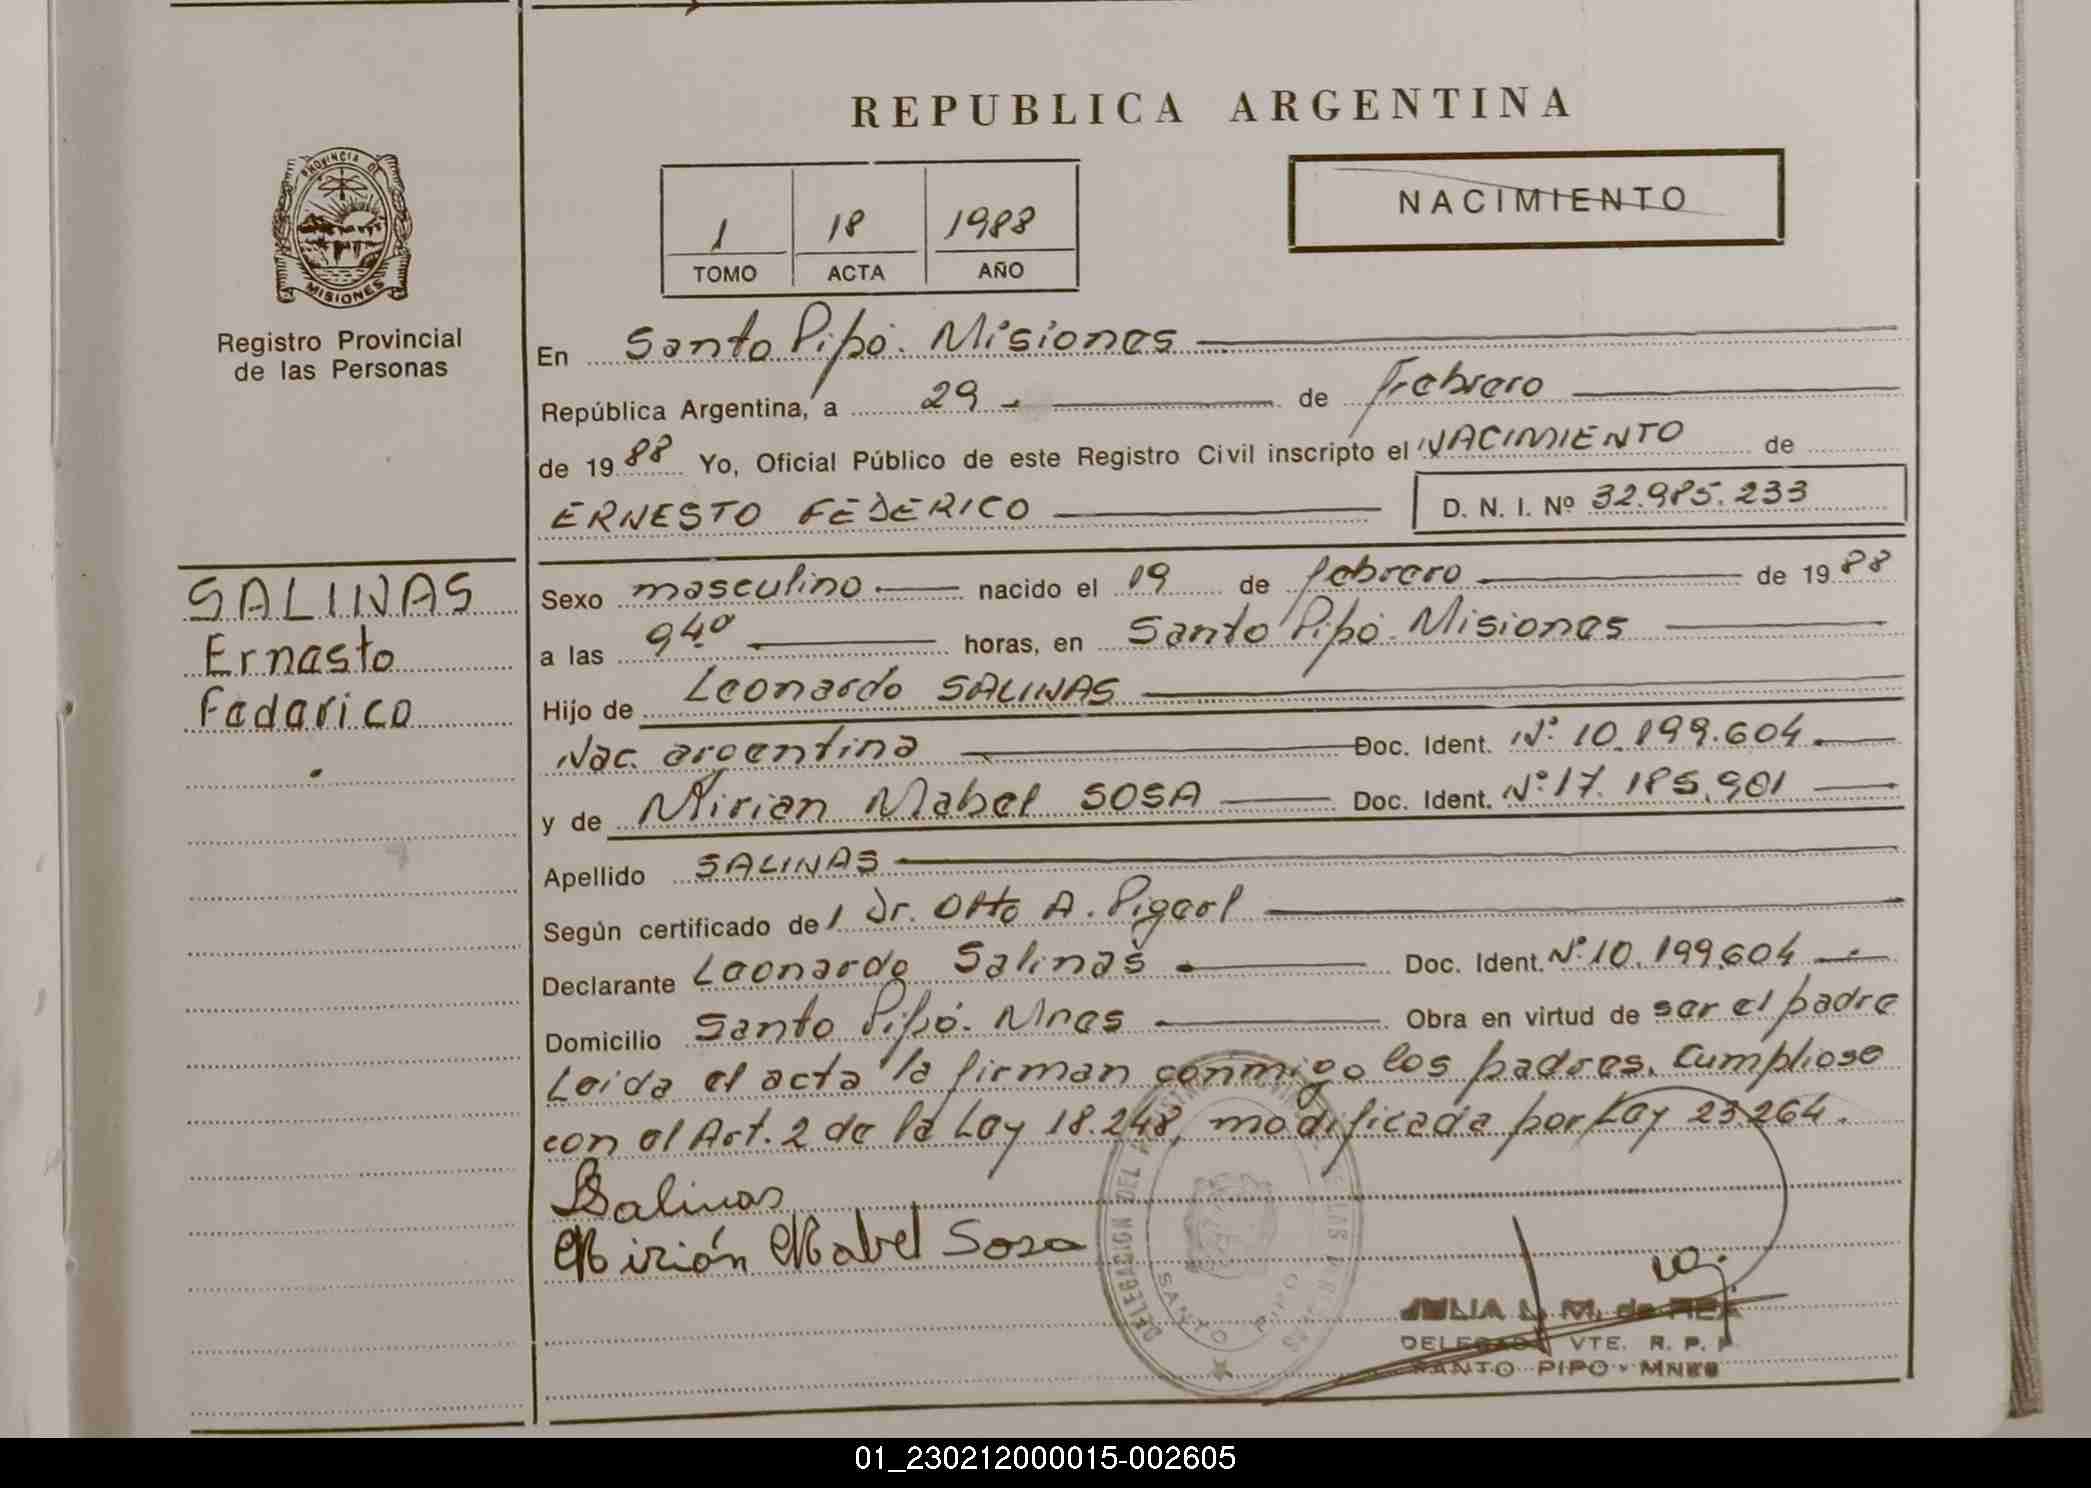 REPUBLICA ARGENTINA
PROVINCIA DE
MISIONES
Registro Provincial
de las Personas
1 18 1988
TOMO ACTA AÑO
NACIMIENTO
En Santo Pipó. Misiones
República Argentina, a 29 de Febrero
de 1988 Yo, Oficial Público de este Registro Civil inscripto el NACIMIENTO de
ERNESTO FEDERICO D. N. I. Nº 32.985.233
SALINAS
Ernesto
Federico
Sexo masculino nacido el 19 de febrero de 1988
a las 9 40 horas, en Santo Pipó. Misiones
Hijo de Leonardo SALINAS
Nac. argentina Doc. Ident. Nº 10.199.604
y de Mirian Mabel SOSA Doc. Ident. Nº 17.185.901
Apellido SALINAS
Según certificado del Dr. Otto A.
Declarante Leonardo Salinas Doc. Ident. Nº 10.199.604
Domicilio Santo Pipó. Mnes Obra en virtud de ser el padre
Leida el acta la firman conmigo los padres. Cumpliose
con el Art. 2 de la Ley 18.248, modificada por Ley 23.264.
Salinas
Mirián Mabel Sosa
DELEGACION DEL
SANTO PIPO
JULIA L. M. de
DELEGADA VTE. R. P. P.
SANTO PIPO - MNES
01_230212000015-002605